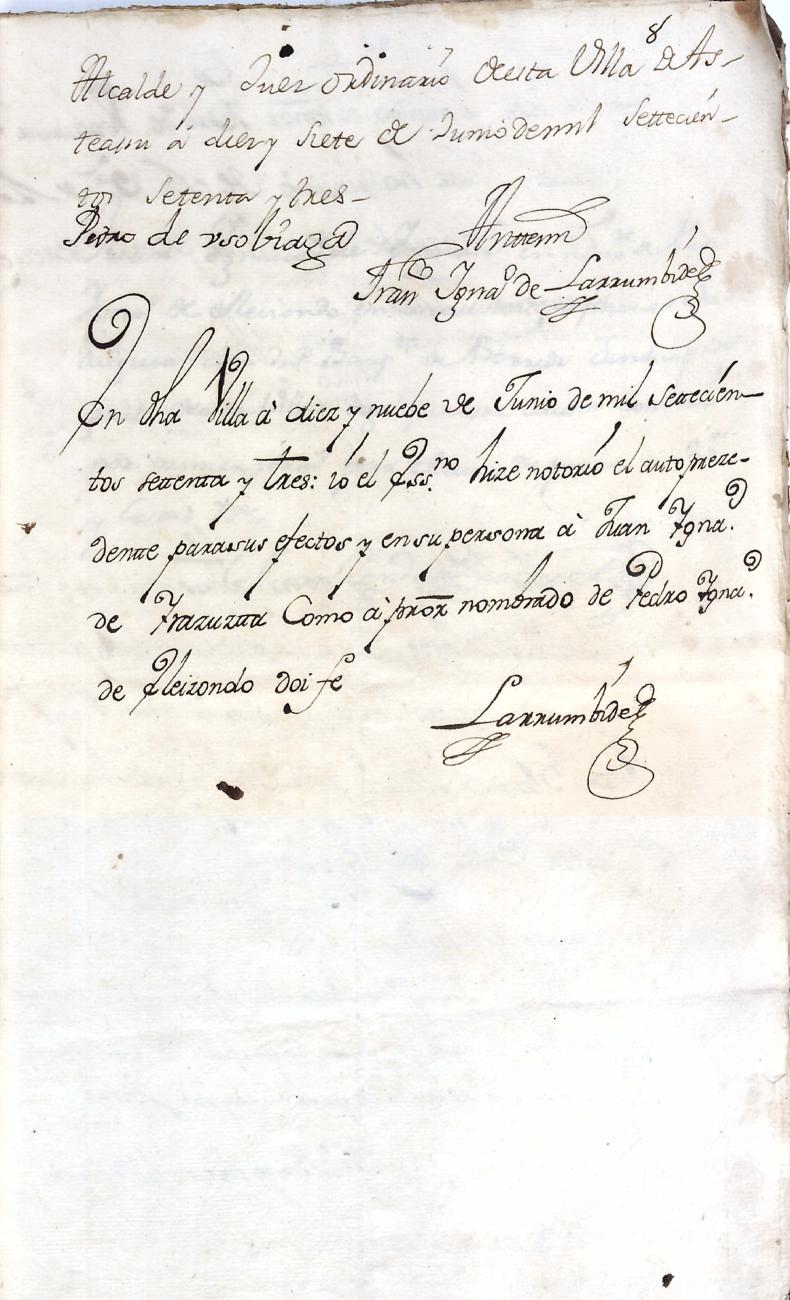 8
Alcalde y Juez ordinario desta Villa de As-
teasu à diez y siete de Junio de mil settecien-
tos setenta y tres-
Pedro de Vsobiaga Antemi
Fran.co Igna.o de Larrumbide
En dha Villa à diez y nuebe de Junio de mil settecien-
tos settenta y tres: io el Ess.no hize notorio el auto preze-
dente para sus efectos y en su persona à Juan Igna.o
de Irazuzta Como à pror nombrado de Pedro Igna.o
de Eleizondo doi fe
Larrumbide